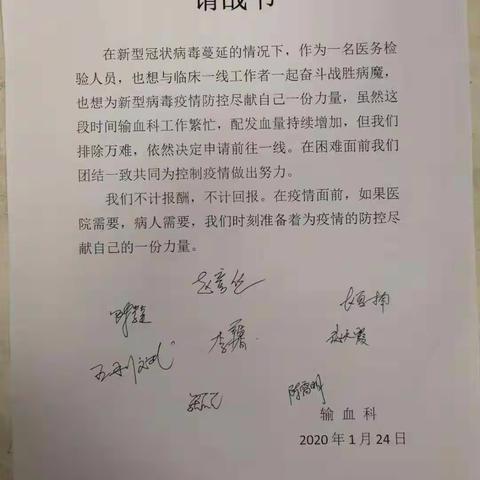 请战书
在新型冠状病毒蔓延的情况下，作为一名医务检
验人员，也想与临床一线工作者一起奋斗战胜病魔，
也想为新型病毒疫情防控尽献自己一份力量，虽然这
段时间输血科工作繁忙，配发血量持续增加，但我们
排除万难，依然决定申请前往一线。在困难面前我们
团结一致共同为控制疫情做出努力。
我们不计报酬，不计回报。在疫情面前，如果医
院需要，病人需要，我们时刻准备着为疫情的防控尽
献自己的一份力量。
输血科
2020年1月24日